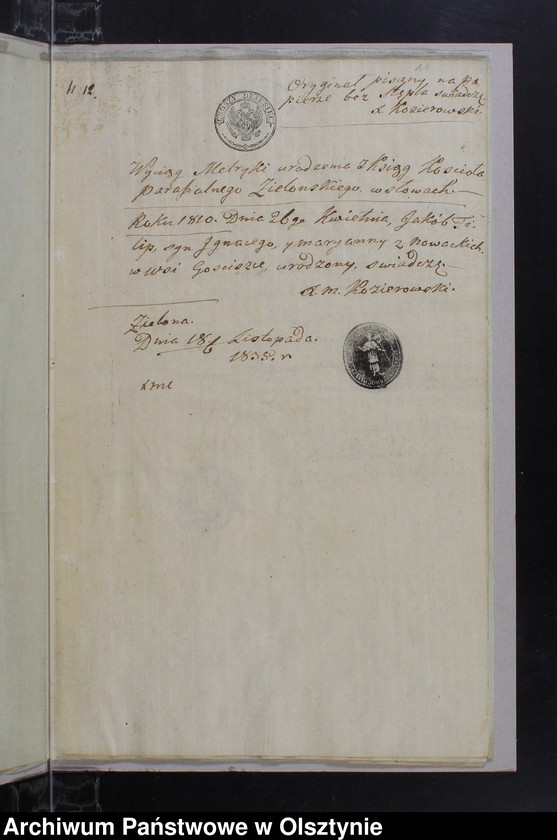 11
4 12.
Oryginał pisany na pa
pierze bez stępla swiadczę
X Kozierowski.
Wyciąg Metryki urodzenia z Xsiąg Kosciola
Parafialnego Zielonskiego, w słowach
Roku 1810. Dnia 26go Kwietnia, Jakób Fi
lip, syn Ignacego, y Maryanny z Nowackich,
w wsi Gosciszce, urodzony, swiadczę
X. M. Kozierowski.
Zielona.
Dnia 18 Listopada.
1835. r
Archiwum Państwowe w Olsztynie